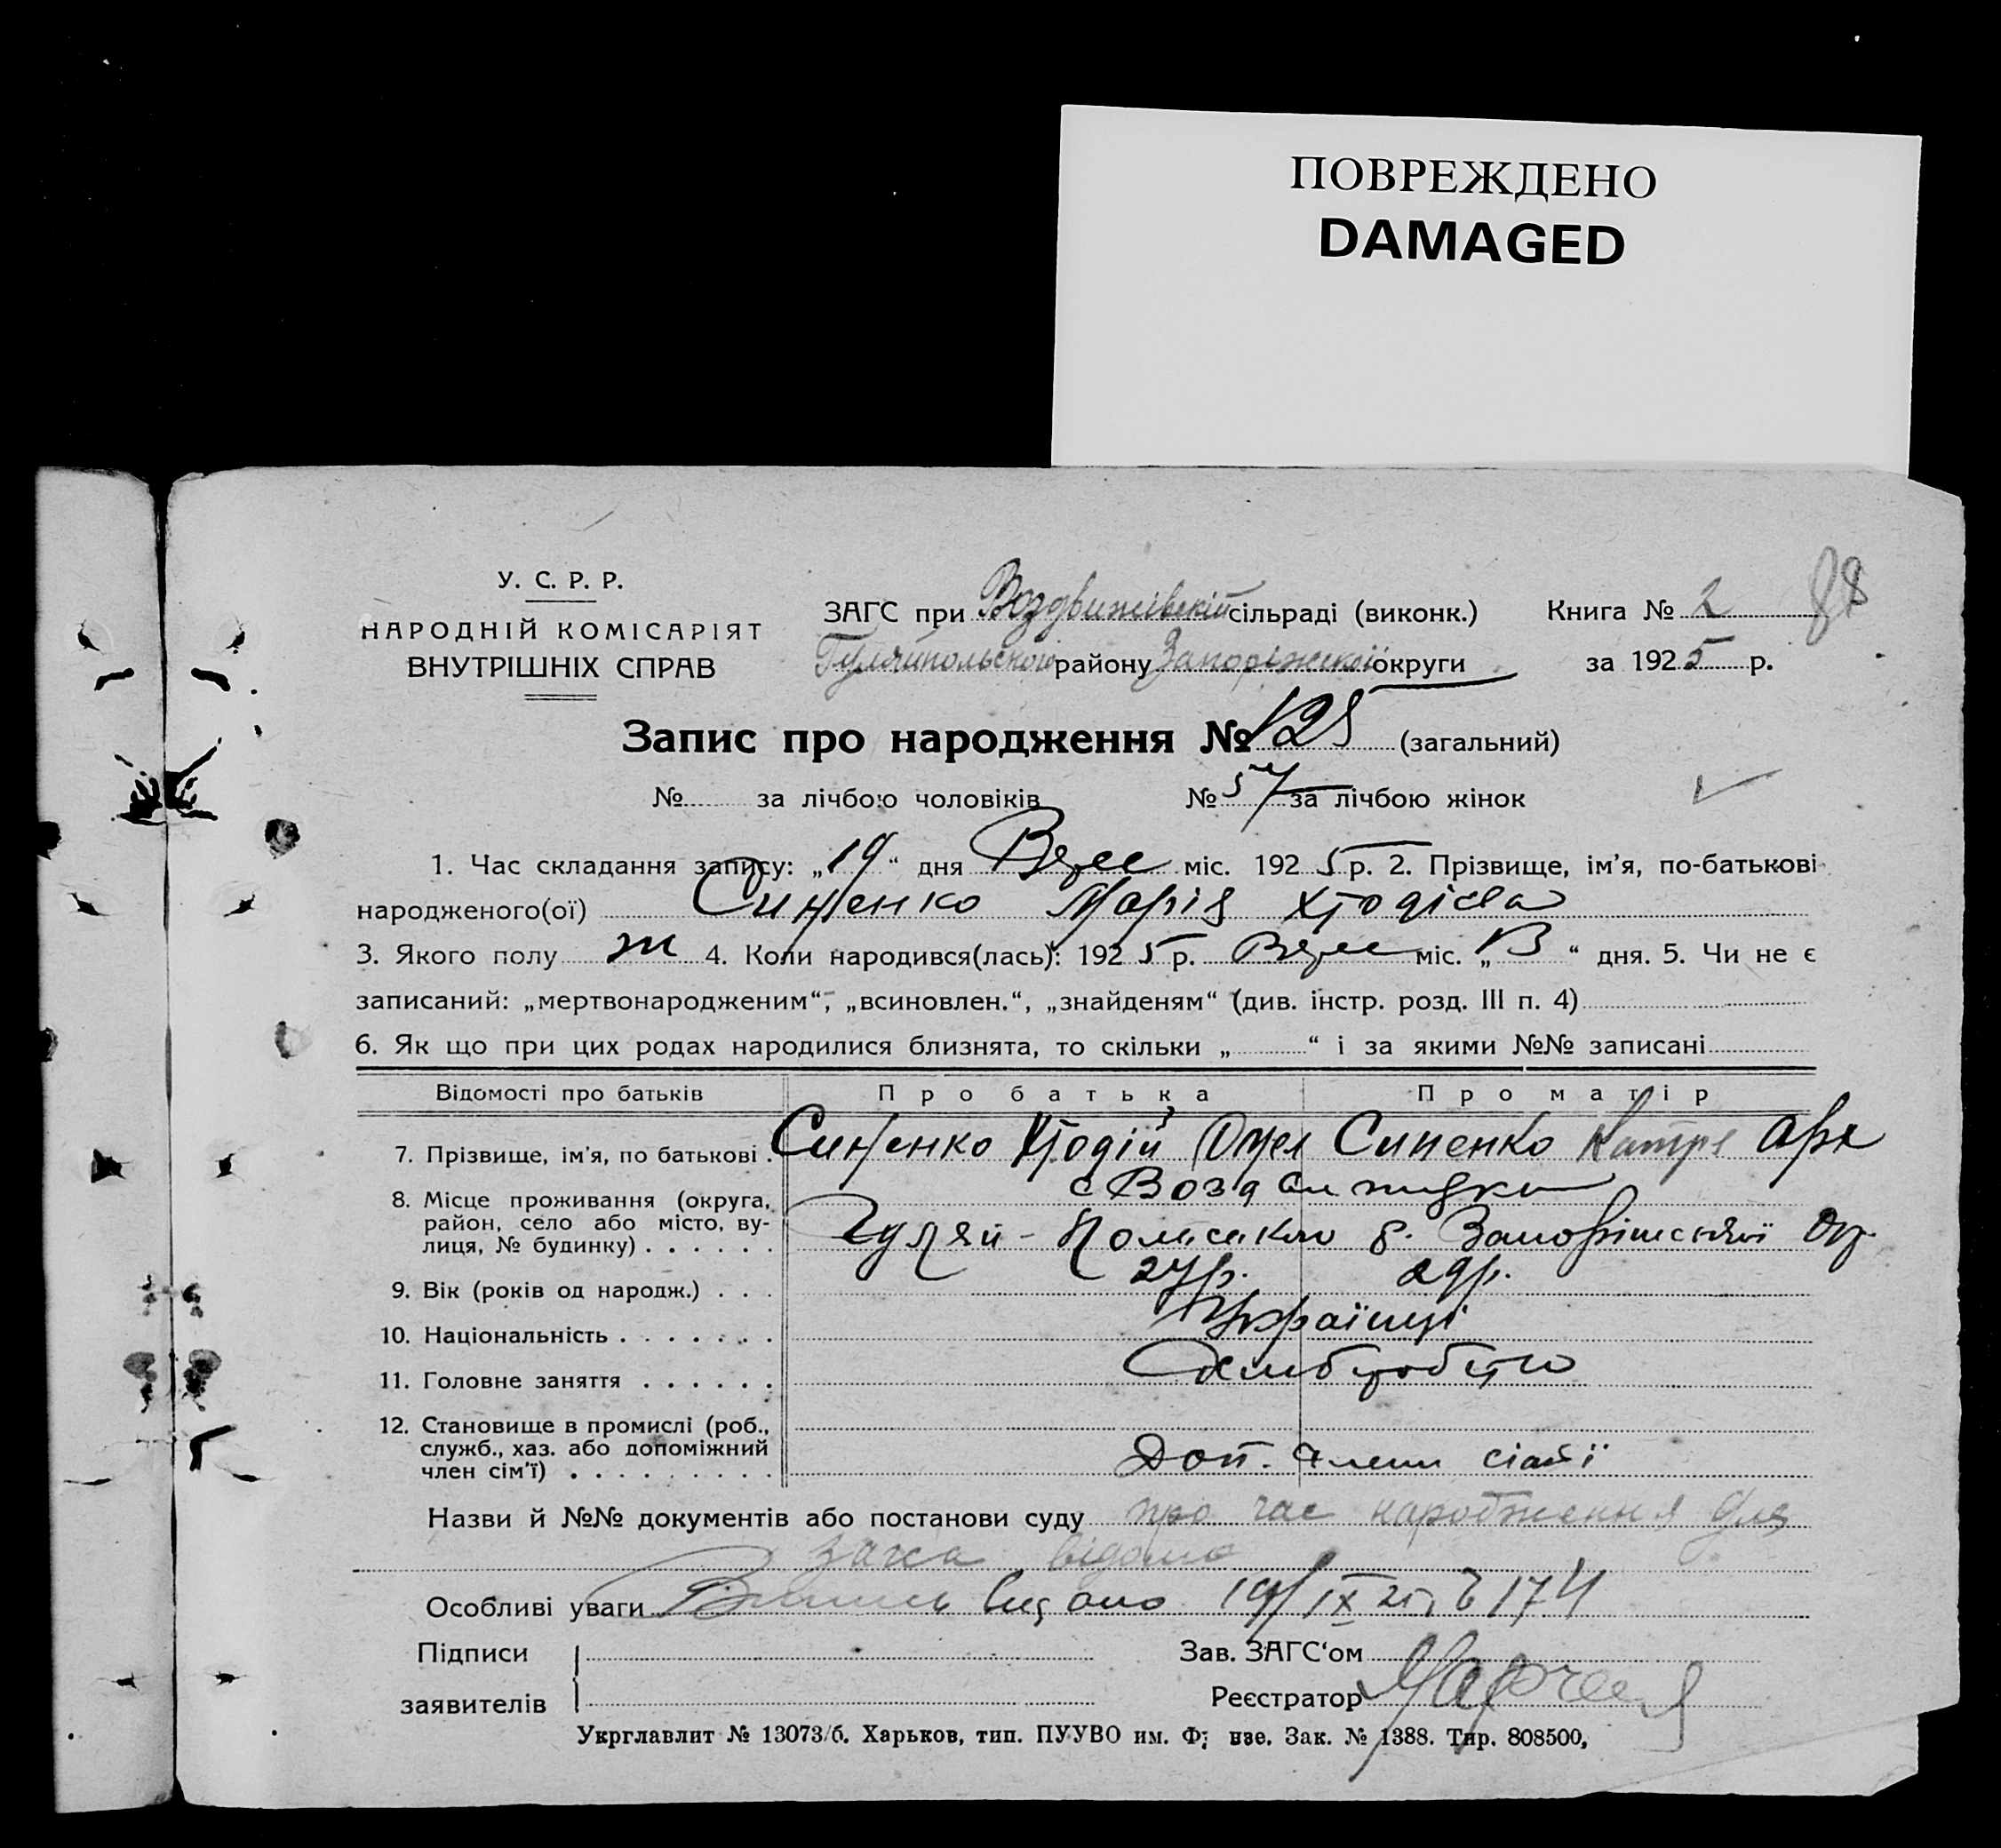 ПОВРЕЖДЕНО
DAMAGED
У. С. Р. Р.
НАРОДНІЙ КОМІСАРІЯТ
ВНУТРІШНІХ СПРАВ
ЗАГС при Воздвижівскій сільраді (виконк.)
Гуляйпольского району Запоріжскої округи
Книга № 2
88
за 1925 р.
Запис про народження № 125 (загальний)
№ за лічбою чоловіків № 57 за лічбою жінок
1. Час складання запису: „19“ дня Верес міс. 1925 р. 2. Прізвище, ім’я, по-батькові
народженого(ої) Синенко Марія
3. Якого полу ж 4. Коли народився(лась): 1925 р. Верес міс. „13“ дня. 5. Чи не є
записаний: „мертвонародженим“, „всиновлен.“, „знайденям“ (див. інстр. розд. III п. 4)
6. Як що при цих родах народилися близнята, то скільки „ “ і за якими №№ записані
Відомості про батьків Про батька Про матір
7. Прізвище, ім’я, по батькові . Синенко Синенко Катря
8. Місце проживання (округа, район, село або місто, ву- лиця, № будинку) . . . . . . с Воздвижівка
Гуляй-Польского р. Запоріжської Окр.
9. Вік (років од народж.) . . . 27 р. 29 р.
10. Національність . . . . . . . Українці
11. Головне заняття . . . . . . Хліборобство
12. Становище в промислі (роб., служб., хаз. або допоміжний член сім’ї) . . . . . . . . . Доп. члени сімї
Назви й №№ документів або постанови суду про час народження для
загса відомо
Особливі уваги Випись видано 19/IX 25 174
Підписи
заявителів
Зав. ЗАГС‘ом
Реєстратор
Укрглавлит № 13073/б. Харьков, тип. ПУУВО им. Ф нзе. Зак. № 1388. Тир. 808500,